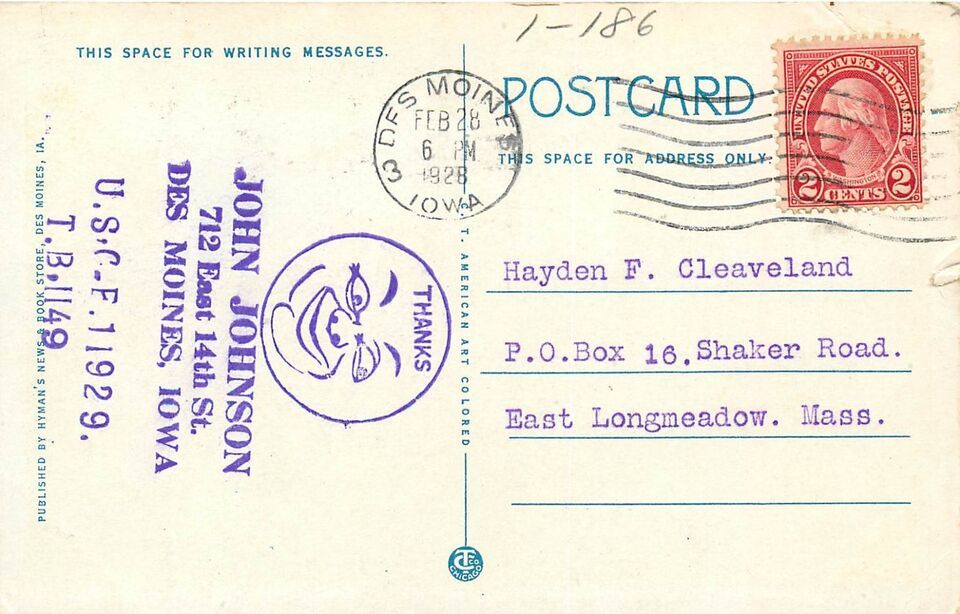 1-186
THIS SPACE FOR WRITING MESSAGES.
POSTCARD
THIS SPACE FOR ADDRESS ONLY.
3 DES MOINES
FEB 28
6 PM
1928
IOWA
UNITED STATES POSTAGE
WASHINGTON
2 CENTS 2
Hayden F. Cleaveland
P.O.Box 16. Shaker Road.
East Longmeadow. Mass.
THANKS
JOHN JOHNSON
712 East 14th St.
DES MOINES, IOWA
U.S.C-E.11929.
T.B.1149
PUBLISHED BY HYMAN'S NEWS & BOOK STORE, DES MOINES, IA.
C. T. AMERICAN ART COLORED
CT CO
CHICAGO